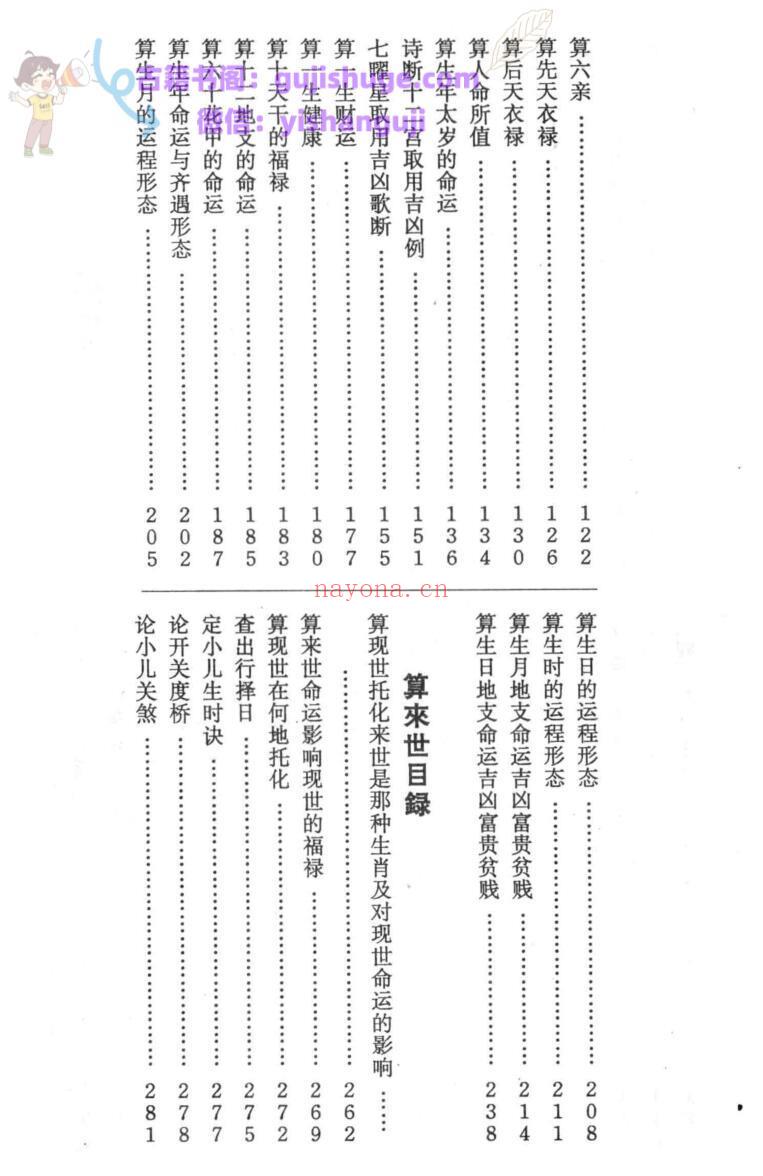 古籍书阁：gujishuge.com
微信：yishanguji
算六亲……………………122
算先天衣禄……………………126
算后天衣禄……………………130
算人命所值……………………134
算生年太岁的命运……………………136
诗断十二宫取用吉凶例……………………151
七曜星取用吉凶歌断……………………155
算一生财运……………………177
算一生健康……………………180
算十天干的福禄……………………183
算十二地支的命运……………………185
算六十花甲的命运……………………187
算生年命运与齐遇形态……………………202
算生月的运程形态……………………205
nayona.cn
算生日的运程形态……………………208
算生时的运程形态……………………211
算生月地支命运吉凶富贵贫贱……………………214
算生日地支命运吉凶富贵贫贱……………………238
算來世目録
算现世托化来世是那种生肖及对现世命运的影响……
……………………262
算来世命运影响现世的福禄……………………269
算现世在何地托化……………………272
查出行择日……………………275
定小儿生时诀……………………277
论开关度桥……………………278
论小儿关煞……………………281